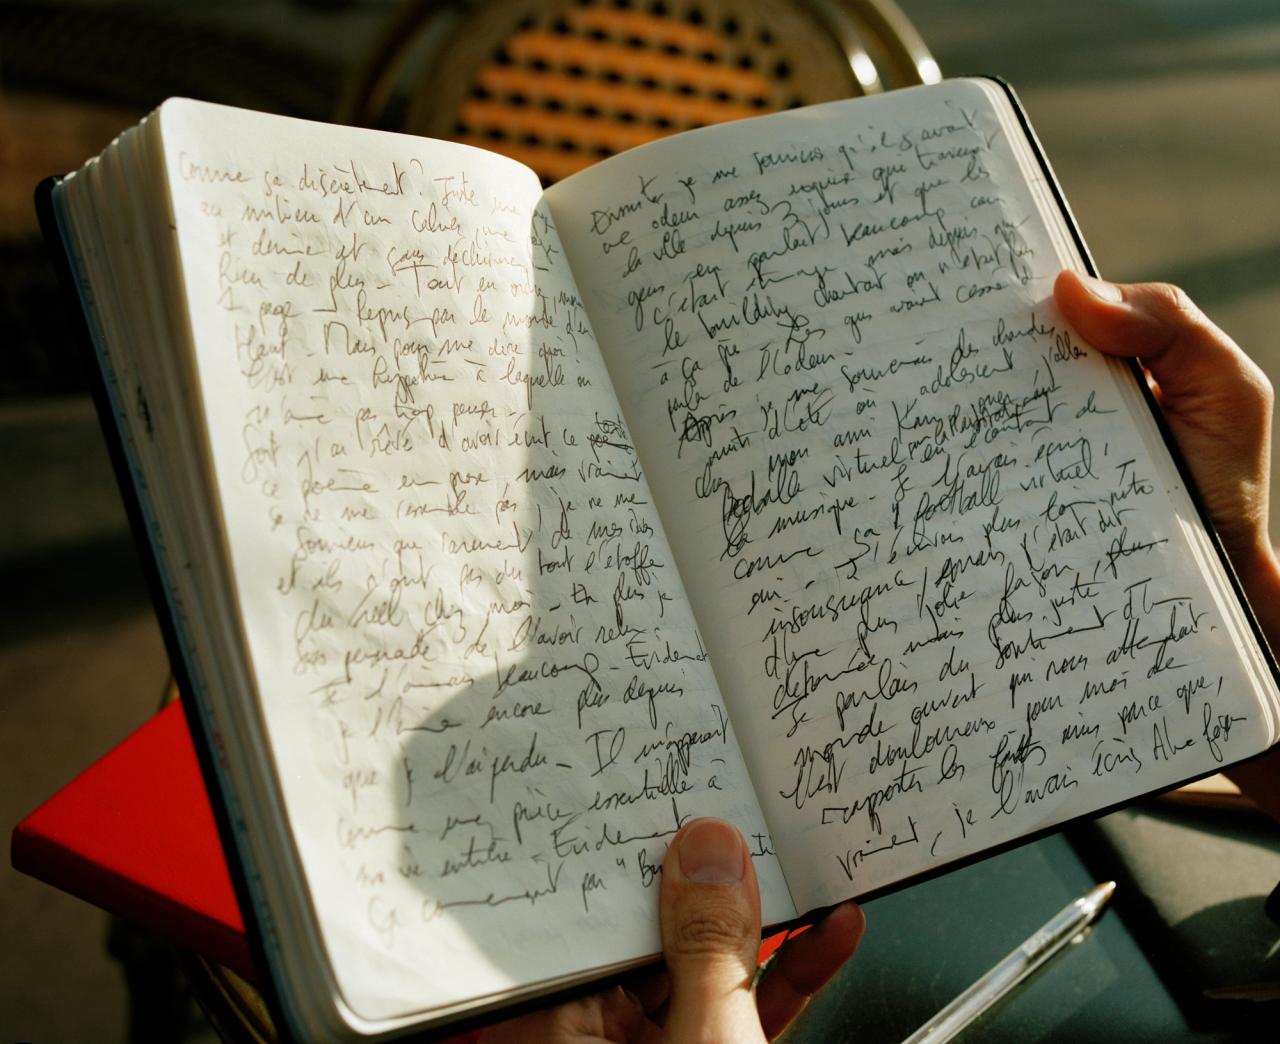 Comme ça discrètement? Juste une
au milieu d'un calme, une
et demie et sans déchirure
Rien de plus - Tout en
1 page - Repris par le monde d'en
Haut - Mais pour me dire quoi?
C'est une à laquelle on
n'aime pas trop penser -
Soit j'ai rêvé d'avoir écrit ce texte
ce poème en prose, mais vraiment
ça ne me ressemble pas, je ne me
souviens que rarement de mes rêves
et ils n'ont pas du tout l'étoffe
du réel chez moi - En plus je
suis persuadé de l'avoir relu
Je l'aimais beaucoup - Evidemment
je l'aime encore plus depuis
que je l'ai perdu - Il m'apparait
comme une pièce essentielle à
ma vie entière - Evidemment
Ça commençait par "
Ensuite, je me souviens qu'il y avait
une odeur assez exquise qui traversait
la ville depuis 3 jours et que les
gens en parlait beaucoup car
c'était étrange mais depuis que
le building chantait on n'était plus
à ça près - Les gens avaient cessé de
parler de l'odeur -
Après je me souvenais des chaudes
nuits d'été où adolescent j'allais
chez mon ami jouer
Football virtuel sur la Playstation
la musique - en écoutant de
comme ça "football virtuel,
oui - Je l'avais écrit
insouciance, plus loin
d'une plus jolie façon, plus
détournée mais plus juste,
Je parlais du sentiment d'un
monde ouvert qui nous attendait.
C'est douloureux pour moi de
rapporter les faits ainsi parce que,
vraiment, je l'avais écrit